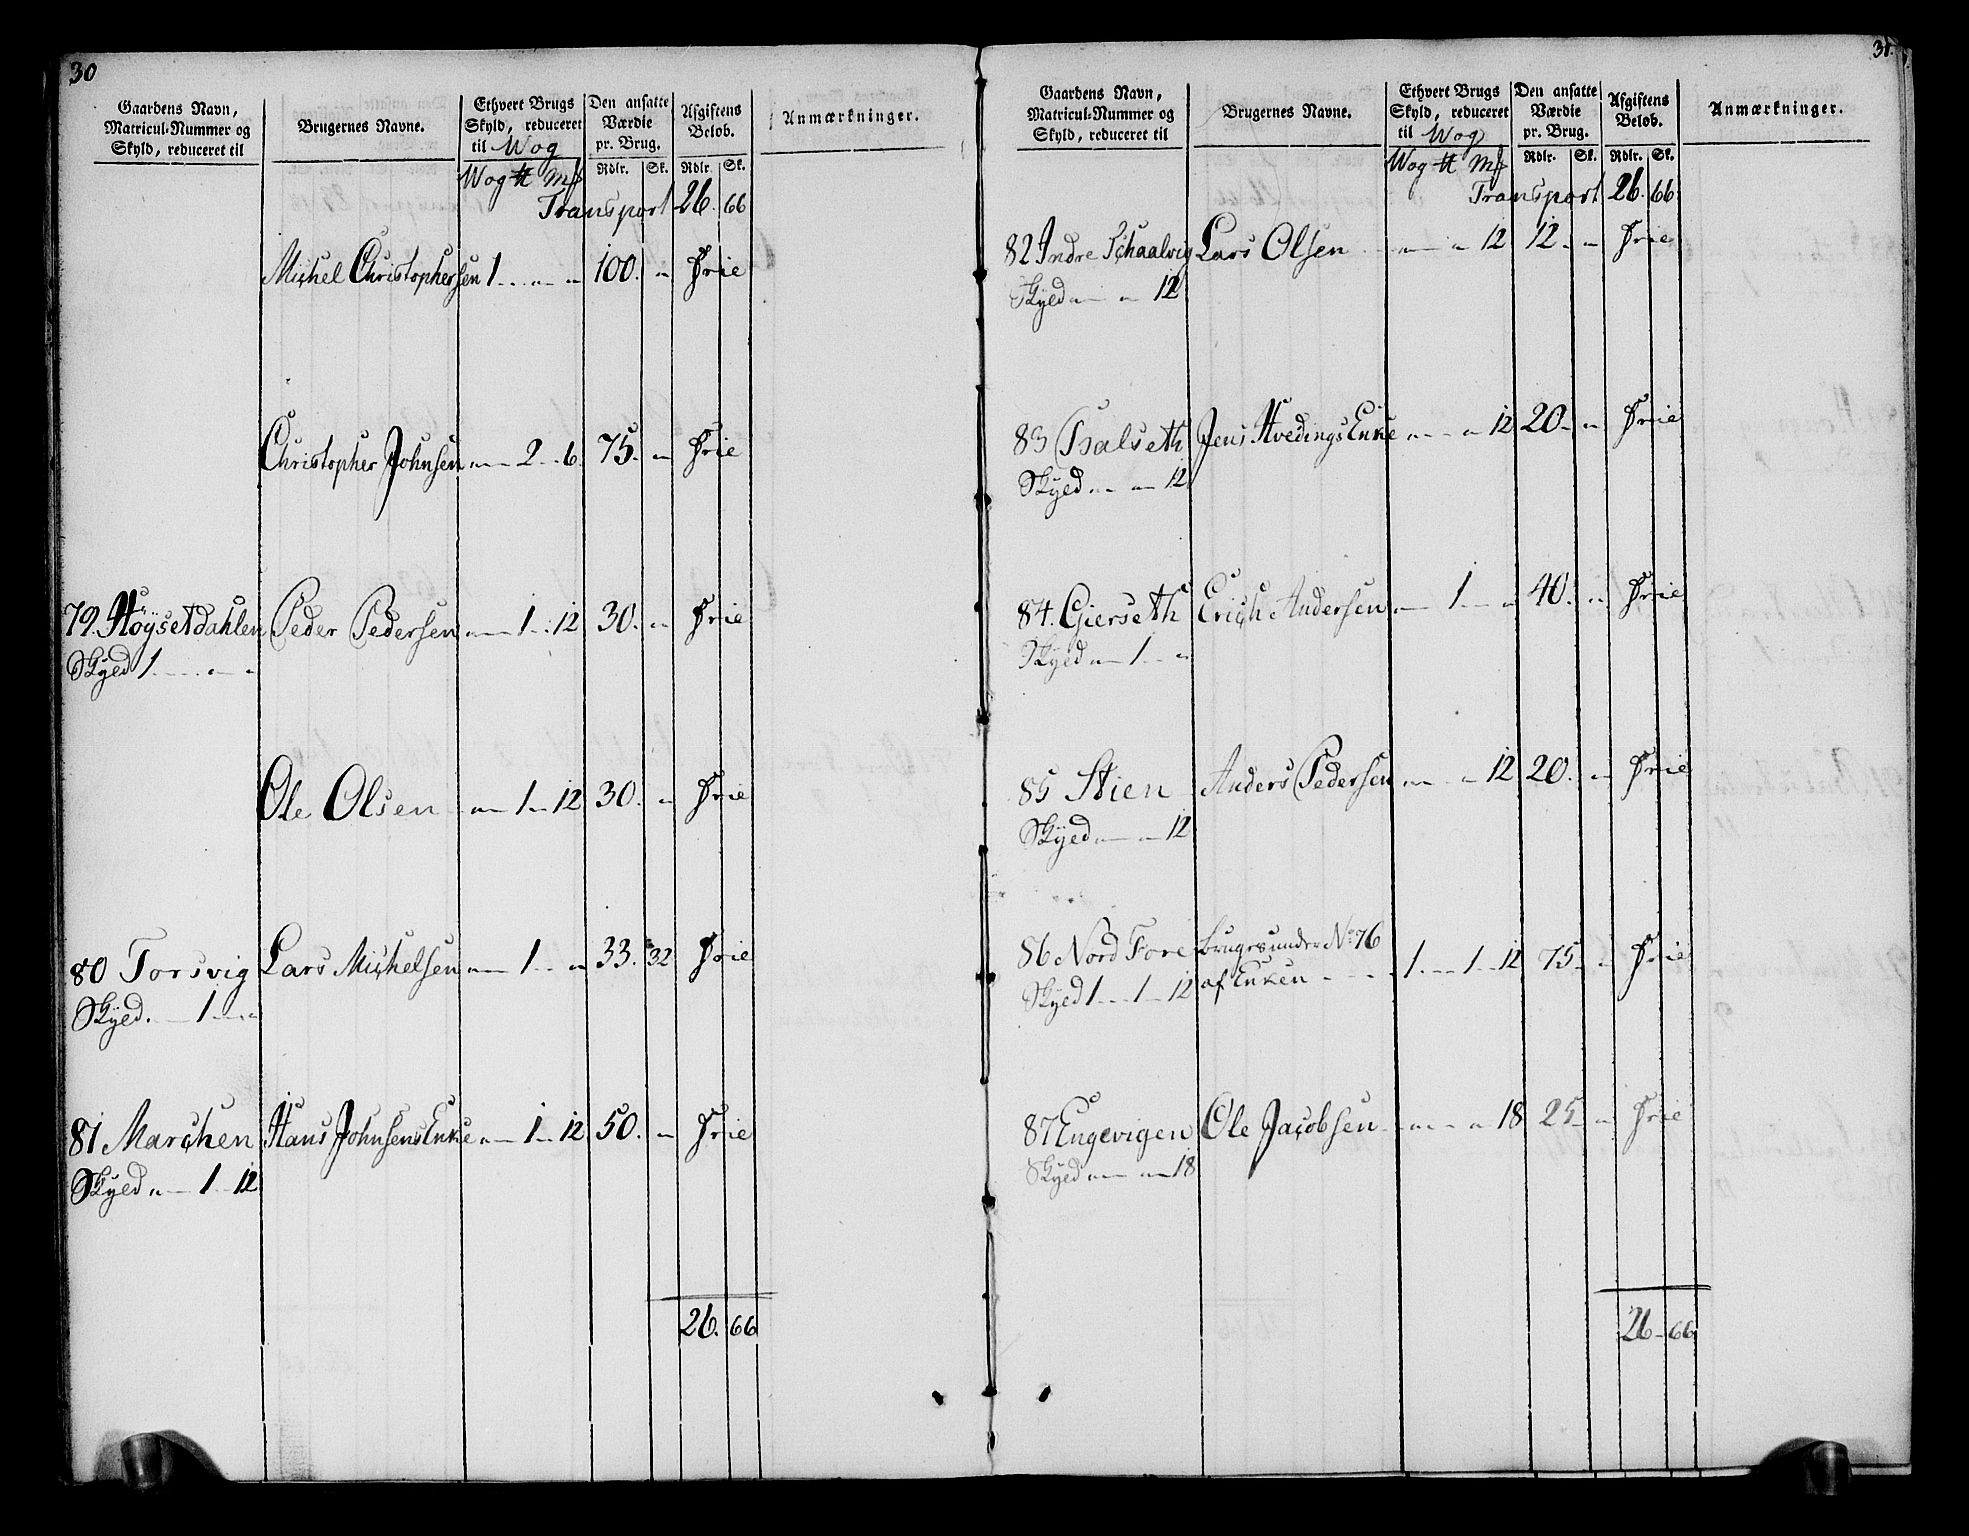 30
Gaardens Navn, Matricul-Nummer og Skyld, reduceret til
Brugernes Navne.
Ethvert Brugs Skyld, reduceret til Wog
Den ansatte Værdie pr. Brug.
Afgiftens Beløb.
Anmærkninger.
Wog ℔ Mk Rdlr. Sk. Rdlr. Sk.
Transport 26. 66
Michel Christophersen 1 . . „ „ 100. „ Frie
Christopher Johnsen „ 2 . 6. 75. „ Frie
79. Höysetdahlen Peder Pedersen „ 1 . 12 30. „ Frie
Skyed 1 . . „ „
Ole Olsen „ 1 „ 12 30. „ Frie
80 Torsvig Lars Michelsen „ 1 . „ 33. 32 Frie
Skyed. „ 1 . „
81 Marchen Hans Johnsens Enke „ 1 „ 12 50. „ Frie
Skyed „ 1 . 12
26. 66
31.
Gaardens Navn, Matricul-Nummer og Skyld, reduceret til
Brugernes Navne.
Ethvert Brugs Skyld, reduceret til Wog
Den ansatte Værdie pr. Brug.
Afgiftens Beløb.
Anmærkninger.
Wog ℔ Mk Rdlr. Sk. Rdlr. Sk.
Transport 26. 66
82 Indre Schaalvig Lars Olsen „ „ 12 12. „ Frie
Skyed „ „ 12
83 Dalseth Jens Hvedings Enke „ „ 12 20. „ Frie
Skyed „ „ 12
84. Gierseth Erich Andersen „ 1 . „ 40. „ Frie
Skyed „ 1 . „
85 Stien Anders Pedersen „ „ 12 20. „ Frie
Skyed „ „ 12
86 Nord Fore bruges under No 76
af Enken 1 . 1 . 12 75. „ Frie
Skyed 1 . 1 . 12
87 Engevigen Ole Jacobsen „ „ 18 25. „ Frie
Skyed „ „ 18
26 . 66